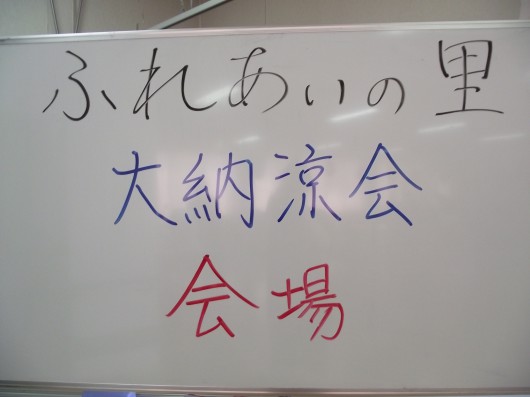 ふれあいの里
大納涼会
会場